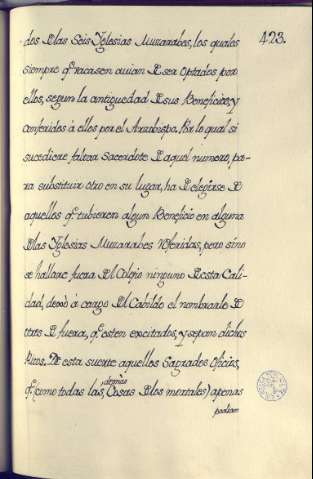 423.
dos D las Seis Yglesias Muzarabes, los quales
siempre q.e vacasen avian D ser optados por
ellos, segun la antiguedad D sus Beneficios, y
conferidos à ellos por el Arzobispo. Por lo qual si
sucediere faltar Sacerdote D aquel numero, pa-
ra substituir otro en su lugar, ha D elegirse D
aquellos q.e tubieren algun Beneficio en alguna
D las Yglesias Muzarabes referidas, pero sino
se hallare fuera Del Colegio ninguno D esta Cali-
dad, dexò à cargo Del Cabildo el nombrarle D
otros D fuera, q.e esten excitados, y sepan dichos
Ritos. De esta suerte aquellos Sagrados Oficios,
q.e (como todas las demas Cosas D los mortales) apenas
podian